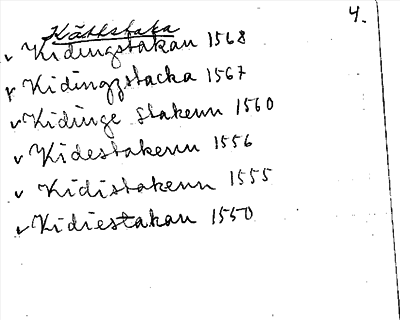 4.
Kättstaka
v Kidingstakan 1568
v Kidingzstacka 1567
v Kidinge stakenn 1560
v Kidestakenn 1556
v Kidistakenn 1555
v Kidiestakan 1550